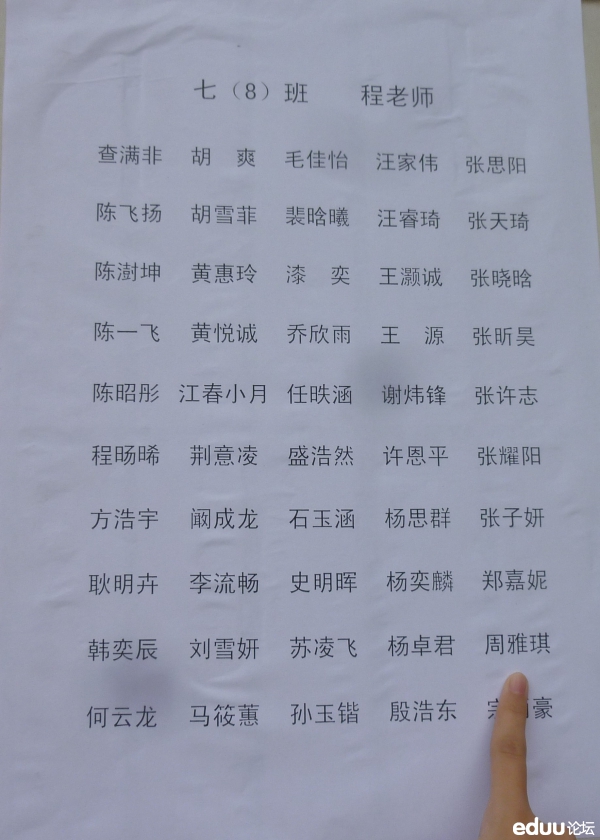 七（8）班 程老师
查满非 胡 爽 毛佳怡 汪家伟 张思阳
陈飞扬 胡雪菲 裴晗曦 汪睿琦 张天琦
陈澍坤 黄惠玲 漆 奕 王灏诚 张晓晗
陈一飞 黄悦诚 乔欣雨 王 源 张昕昊
陈昭彤 江春小月 任昳涵 谢炜锋 张许志
程旸晞 荆意凌 盛浩然 许恩平 张耀阳
方浩宇 阚成龙 石玉涵 杨思群 张子妍
耿明卉 李流畅 史明晖 杨奕麟 郑嘉妮
韩奕辰 刘雪妍 苏凌飞 杨卓君 周雅琪
何云龙 马筱蕙 孙玉锴 殷浩东 豪
eduu论坛